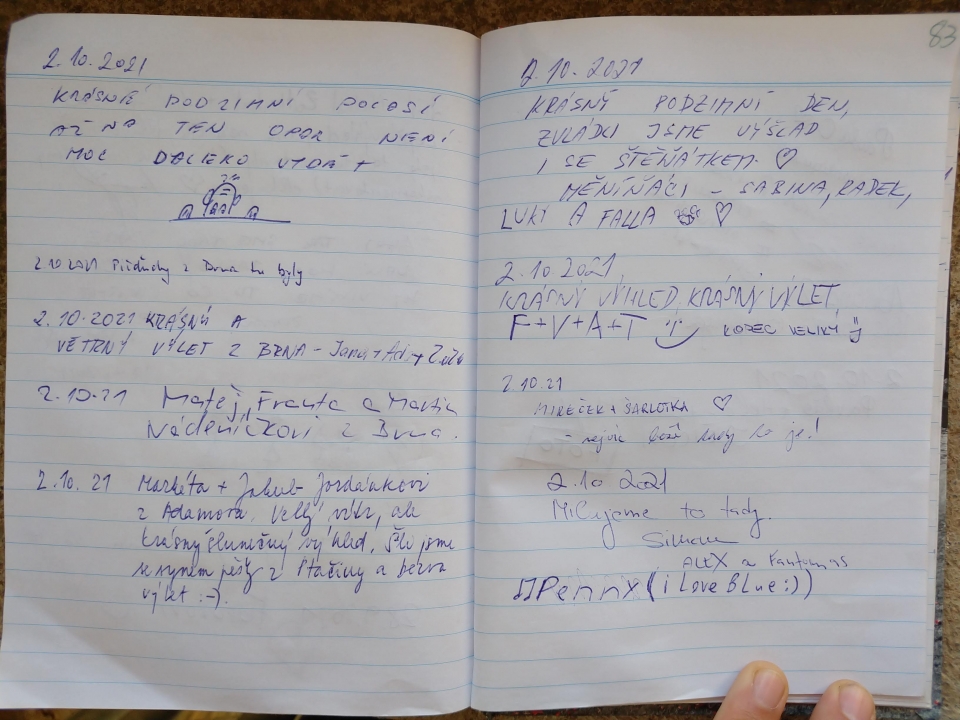 2.10.2021
KRÁSNÉ PODZIMNÍ POČASÍ
AŽ NA TEN OPAR NENÍ
MOC DALEKO VIDĚT
2.10.2021 z Brna tu byly
2.10.2021 KRÁSNÝ A
VĚTRNÝ VÝLET Z BRNA - Jana + Adi +
2.10.21 Matěj, Franta a Martin
Nádeníčkovi z Brna.
2.10.21 Markéta + Jakub Jordánkovi
z Adamova. Velký vítr, ale
krásný slunečný výhled. Šli jsme
se synem pěšky z a
výlet :-).
83
2.10.2021
KRÁSNÝ PODZIMNÍ DEN,
ZVLÁDLI JSME VÝŠLAP
I SE ŠTĚŇÁTKEM ♡
MĚNÍŇÁCI - SABINA, RADEK,
LUKI A FALLA ♡
2.10 2021
KRÁSNÝ VÝHLED, KRÁSNÝ VÝLET
F+V+A+T KOPEC VELIKÝ
2.10.21
MIREČEK + ŠARLOTKA ♡
- nejvíc boží tady to je!
2.10 2021
Milujeme to tady.
Simona
ALEX a Fantomas
Pennx (i Love Blue:))